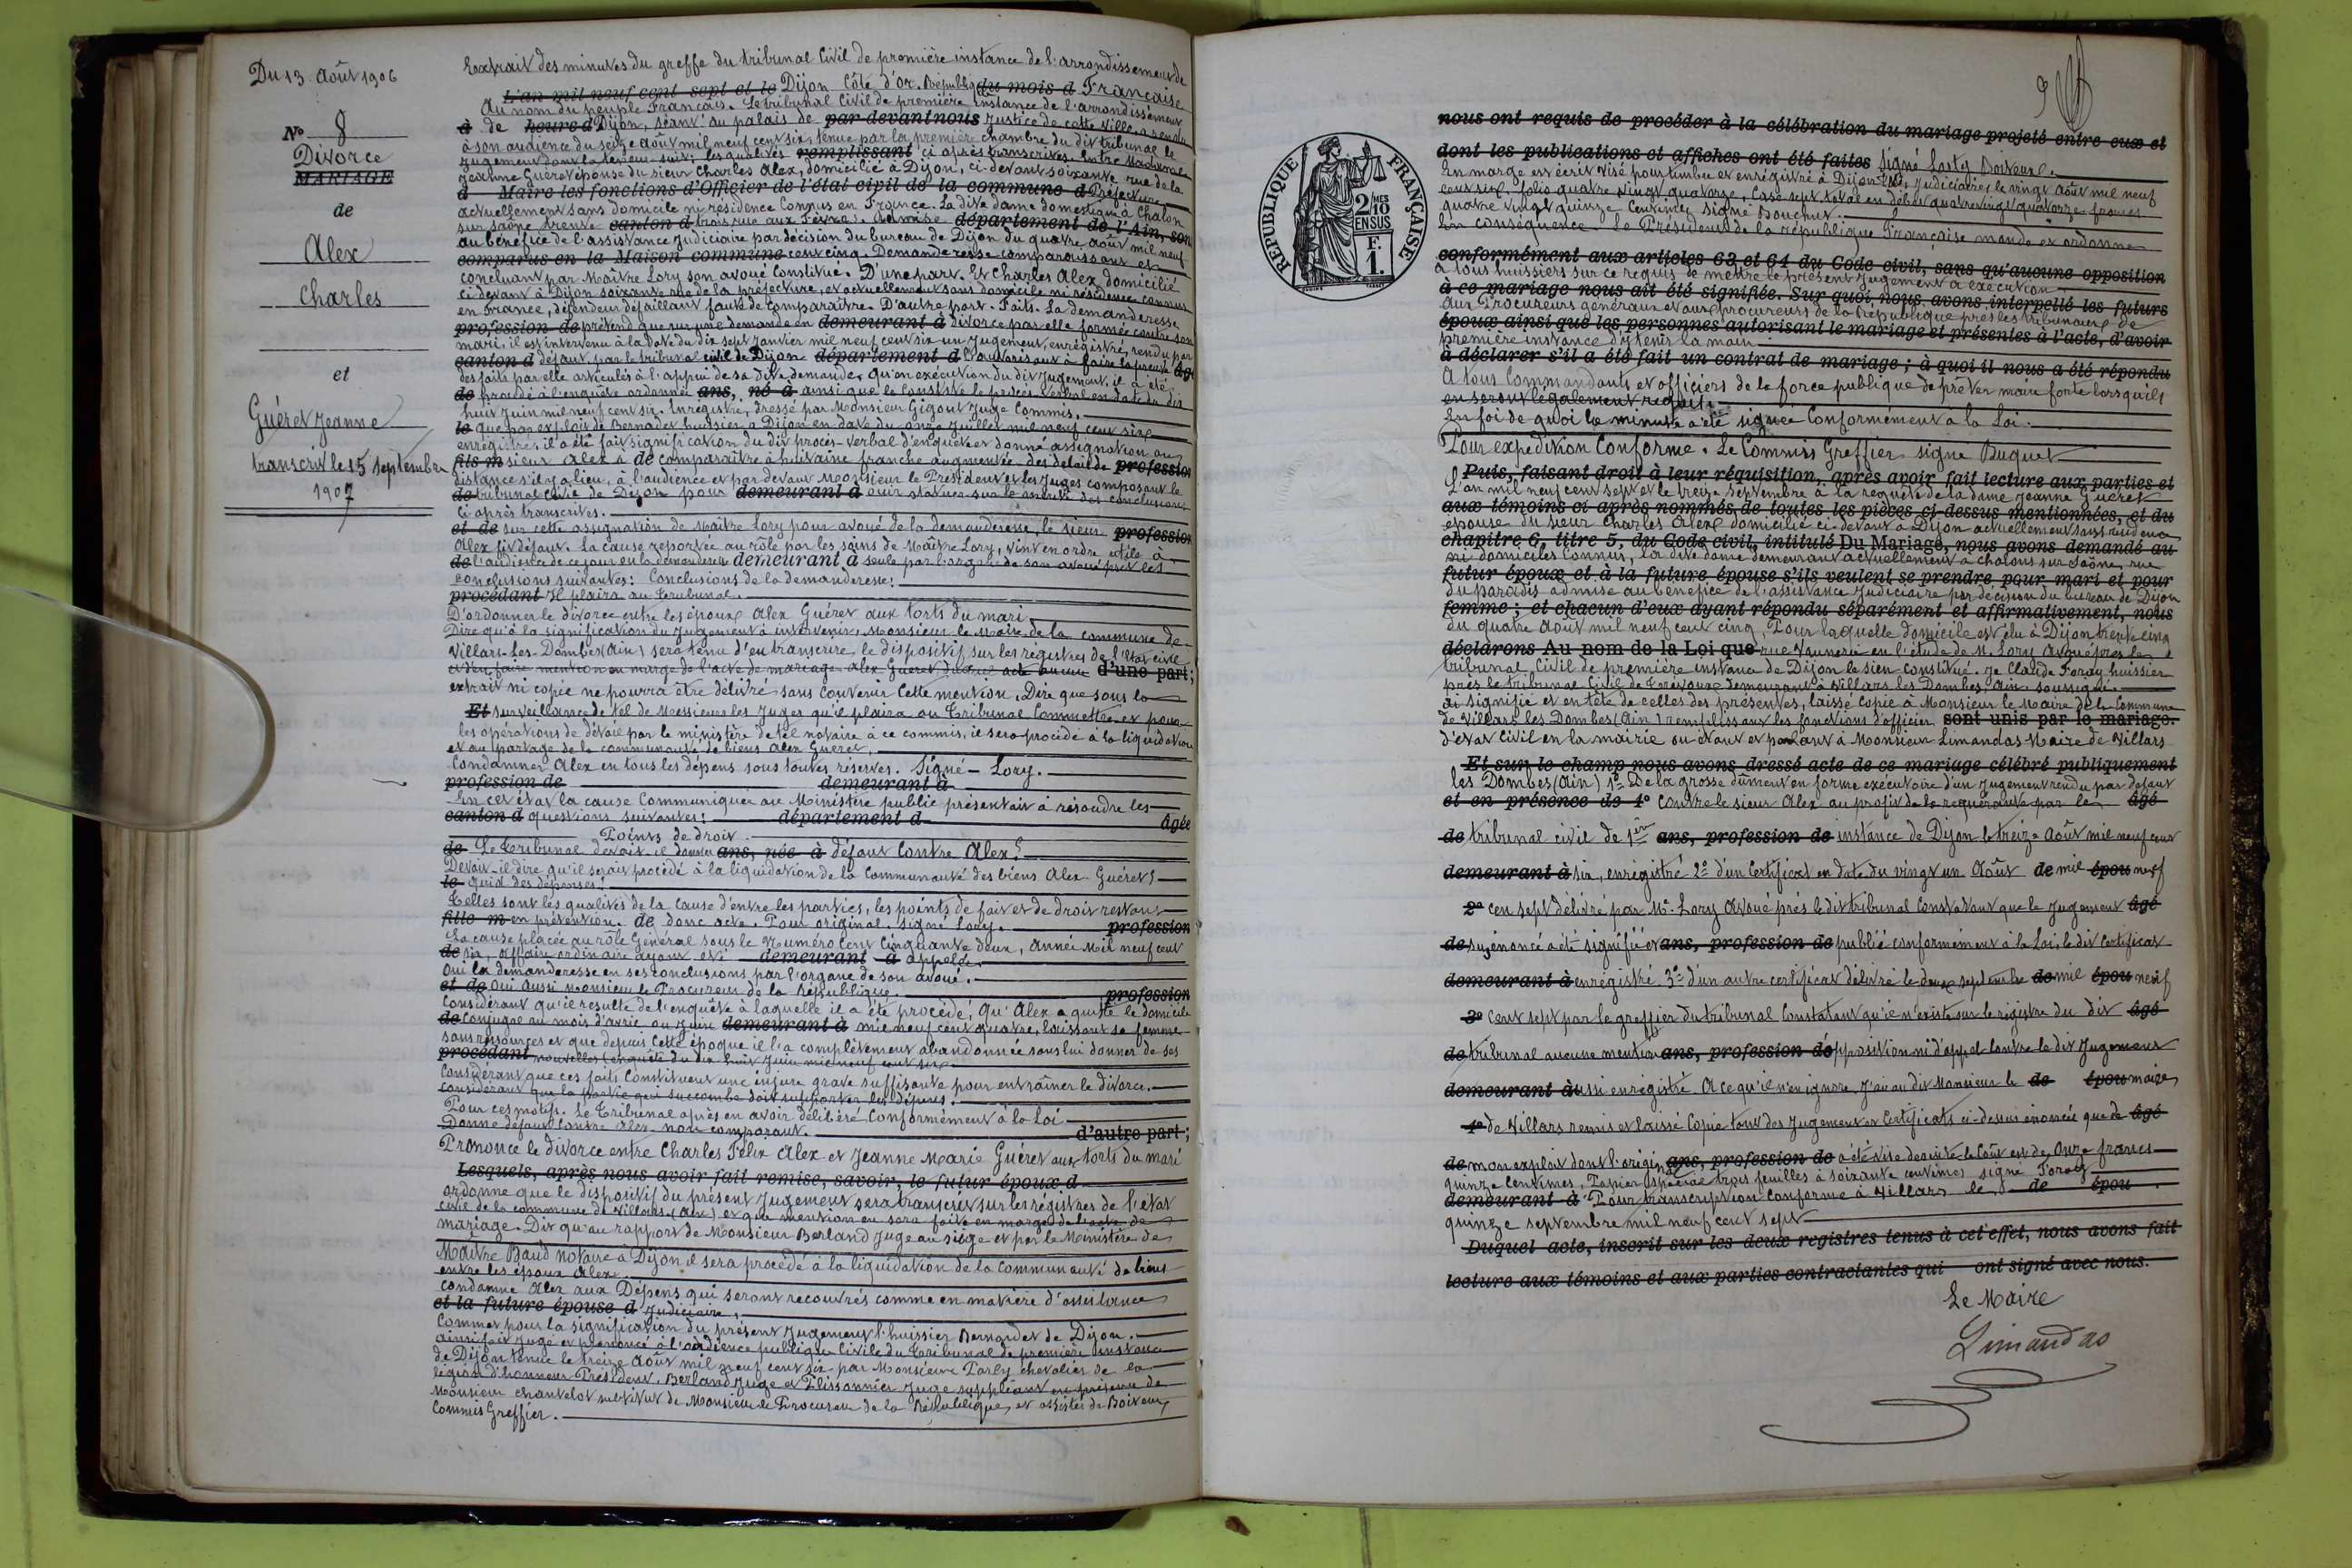 Du 13 Août 1906
N° 8
Divorce
MARIAGE
de
Alex
Charles
et
Guéret Jeanne
transcrit le 15 septembre
1907
Extrait des minutes du greffe du tribunal Civil de première instance de l'arrondissement de
L'an mil neuf cent sept et le Dijon Côte d'Or. République du mois d Française
Au nom du peuple Français. Le tribunal Civil de première instance de l'arrondissement
à de heure d Dijon, séant au palais de par devant nous Justice de cette ville a rendu
à son audience du seize Août mil neuf cent six, tenue par la première chambre du dit tribunal le
Jugement dont la teneur suit; les qualités remplissant ci après transcrites. Entre Madame
Jeanne Guéret épouse du sieur Charles Alex, domicilié à Dijon, ci-devant soixante rue de la
d Maire les fonctions d'Officier de l'état civil de la commune d Préfecture
actuellement sans domicile ni résidence connus en France. La dite dame domestique à Chalon
sur saône trente canton d trois rue aux Fèvres. Admise département de l'Ain, son
au bénéfice de l'assistance Judiciaire par décision du bureau de Dijon du quatre Août mil neuf
comparus en la Maison commune cent cinq. Demanderesse comparaissant et
concluant par Maître Lory son avoué Constitué. D'une part. Et Charles Alex domicilié
ci-devant à Dijon soixante rue de la préfecture, et actuellement sans domicile ni résidence connus
en France, défendeur défaillant faute de comparaître. D'autre part. Faits. La demanderesse
profession de prétend que sur une demande en demeurant à divorce par elle formée contre son
mari, il est intervenu à la date du dix sept Janvier mil neuf cent six un Jugement, enregistré, rendu par
canton d défaut, par le tribunal civil de Dijon département d l'autorisant à faire la preuve âgé
des faits par elle articulés à l'appui de sa dite demande, qu'en exécution du dit Jugement, il a été
de procédé à l'enquête ordonnée ans, né à ainsi que le constate le procès verbal en date du dix
huit Juin mil neuf cent six. Enregistré, dressé par Monsieur Gigout Juge Commis.
le que par exploit de Bernardet huissier à Dijon en date du onze Juillet mil neuf cent six
enregistré, il a été fait signification du dit procès-verbal d'enquête et donné assignation au
fils m sieur Alex à de comparaître à huitaine franche augmentée des délais de profession
distance s'il y a lieu, à l'audience et par devant Monsieur le Président et les Juges composant le
de tribunal civil de Dijon pour demeurant à ouïr statuer sur le mérite des conclusions
ci après transcrites.
et de sur cette assignation de Maître Lory pour avoué de la demanderesse, le sieur profession
Alex fit défaut. La cause reportée au rôle par les soins de Maître Lory, vint en ordre utile à
de l'audience de ce jour où la demanderesse demeurant à seule par l'organe de son avoué prit les
conclusions suivantes: Conclusions de la demanderesse:
procédant Il plaira au tribunal.
D'ordonner le divorce entre les époux Alex Guéret aux torts du mari
Dire qu'à la signification du Jugement à intervenir, Monsieur le Maire de la commune de
Villars-les-Dombes (Ain) sera tenu d'en transcrire le dispositif sur les registres de l'état civil
et d'en faire mention en marge de l'acte de mariage Alex Guéret duquel acte aucun d'une part;
extrait ni copie ne pourra être délivré sans contenir cette mention. Dire que sous la
Et surveillance de tel de Messieurs les Juges qu'il plaira au Tribunal Commettre et pour
les opérations de détail par le ministère de tel notaire à ce commis, il sera procédé à la liquidation
et au partage de la communauté de biens Alex Guéret.
Condamner Alex en tous les dépens sous toutes réserves. Signé - Lory.
profession de demeurant à
En cet état la cause Communiquée au Ministère public présentait à résoudre les
canton d questions suivantes: département d âgée
Points de droit.
de Le tribunal devait-il donner ans, née à défaut contre Alex?
Devait-il dire qu'il serait procédé à la liquidation de la Communauté des biens Alex-Guéret?
le quid des dépenses?
Telles sont les qualités de la cause d'entre les parties, les points de fait et de droit restant
fille m en présentation. de donc acte. Pour original. signé Lory. profession
La cause placée au rôle Général sous le Numéro Cent Cinquante deux, Année Mil neuf cent
de six, affaire ordinaire ayant été demeurant à appelée
Ouï la demanderesse en ses conclusions par l'organe de son avoué.
et de Ouï aussi Monsieur le Procureur de la République. profession
Considérant qu'il résulte de l'enquête à laquelle il a été procédé, Qu'Alex a quitté le domicile
de conjugal au mois d'avril ou Juin demeurant à mil neuf cent quatre, laissant sa femme
sans ressources et que depuis cette époque il l'a complètement abandonnée sans lui donner de ses
procédant nouvelles (enquête du dix huit Juin mil neuf cent six
Considérant que ces faits Constituent une injure grave suffisante pour entraîner le divorce.
Considérant que la partie qui succombe doit supporter les dépens.
Pour ces motifs. Le Tribunal après en avoir délibéré Conformément à la Loi
Donne défaut contre Alex non comparant. d'autre part;
Prononce le divorce entre Charles Félix Alex et Jeanne Marie Guéret aux torts du mari
Lesquels, après nous avoir fait remise, savoir, le futur époux d
ordonne que le dispositif du présent Jugement sera transcrit sur les registres de l'état
civil de la commune de Villars (Ain) et que mention en sera faite en marge de l'acte de
mariage. Dit qu'au rapport de Monsieur Berland Juge au siège et par le Ministère de
Maître Baud Notaire à Dijon il sera procédé à la liquidation de la Communauté de biens
entre les époux Alex.
Condamne Alex aux Dépens qui seront recouvrés comme en matière d'assistance
et la future épouse d Judiciaire.
Commet pour la signification du présent Jugement l'huissier Bernardet de Dijon.
ainsi fait Jugé et prononcé à l'audience publique Civile du Tribunal de première instance
de Dijon tenue le treize Août mil neuf cent six par Monsieur Parly chevalier de la
légion d'honneur Président. Berland Juge et Plissonnier Juge suppléant en présence de
Monsieur Chanvelot substitut de Monsieur le Procureur de la République, et assistés de Boiteux,
Commis Greffier.
9
REPUBLIQUE FRANÇAISE
2/10 MES EN SUS
F. 1.
nous ont requis de procéder à la célébration du mariage projeté entre eux et
dont les publications et affiches ont été faites Signé
En marge est écrit Visé pour timbre et enregistré à Dijon Judiciaires le vingt Août mil neuf
cent six, folio quatre vingt quatorze, case sept total en débet quatre vingt quatorze francs
quatre vingt quinze Centimes signé Bouchut.
En conséquence. Le Président de la république Française mande et ordonne
conformément aux articles 63 et 64 du Code civil, sans qu'aucune opposition
à tous huissiers sur ce requis de mettre le présent Jugement à exécution
à ce mariage nous ait été signifiée. Sur quoi, nous avons interpellé les futurs
Aux Procureurs généraux et aux procureurs de la République près les tribunaux de
époux ainsi que les personnes autorisant le mariage et présentes à l'acte, d'avoir
première instance d'y tenir la main
à déclarer s'il a été fait un contrat de mariage; à quoi il nous a été répondu
A tous Commandants et officiers de la force publique de prêter main forte lorsqu'ils
en seront légalement requis.
En foi de quoi la minute a été signée Conformément à la Loi.
Pour expédition Conforme. Le Commis Greffier signé Buquet
Puis, faisant droit à leur réquisition, après avoir fait lecture aux parties et
L'an mil neuf cent sept et le treize Septembre à la requête de la dame Jeanne Guéret
aux témoins ci après nommés, de toutes les pièces ci-dessus mentionnées, et du
épouse du sieur Charles Alex domicilié ci-devant à Dijon actuellement sans résidence
chapitre 6, titre 5, du Code civil, intitulé Du Mariage, nous avons demandé au
ni domiciles Connus, la dite dame demeurant actuellement à chalons sur Saône, rue
futur époux et à la future épouse s'ils veulent se prendre pour mari et pour
du paradis admise au bénéfice de l'assistance Judiciaire par décision du bureau de Dijon
femme; et chacun d'eux ayant répondu séparément et affirmativement, nous
du quatre Août mil neuf cent cinq, Pour laquelle domicile est élu à Dijon trente cinq
déclarons Au nom de la Loi que rue Vannerie en l'étude de Me Lory avoué près le
tribunal Civil de première instance de Dijon le sien constitué. Je Claude Foray huissier
près le tribunal Civil de Trévoux demeurant à Villars les Dombes, Ain soussigné.
ai signifié et en tête de celles des présentes, laissé copie à Monsieur le Maire de la Commune
de Villars les Dombes (Ain) remplissant les fonctions d'officier sont unis par le mariage.
d'état Civil en la mairie où étant et parlant à Monsieur Limandas Maire de Villars
Et sur le champ nous avons dressé acte de ce mariage célébré publiquement
les Dombes (Ain) 1° De la grosse dûment en forme exécutoire d'un Jugement rendu par défaut
et en présence de 1° contre le sieur Alex au profit de la requérante par le âgé
de tribunal civil de 1ère ans, profession de instance de Dijon le treize Août mil neuf cent
demeurant à six, enregistré 2° d'un Certificat en date du vingt un Août de mil épou neuf
2° cent sept délivré par Me Lory Avoué près le dit tribunal Constatant que le Jugement âgé
de susénoncé a été signifié et ans, profession de publié conformément à la Loi, le dit certificat
demeurant à enregistré. 3° d'un autre certificat délivré le deux septembre de mil épou neuf
3° cent sept par le greffier du tribunal Constatant qu'il n'existe sur le registre du dit âgé
de tribunal aucune mention ans, profession de opposition ni d'appel contre le dit Jugement
demeurant à aussi enregistré. A ce qu'il n'en ignore J'ai au dit Monsieur le de épou maire
4° de Villars remis et laissé Copie tant des Jugement et Certificats ci-dessus énoncés que de âgé
de mon exploit dont l'original ans, profession de a été visé de suite le Coût est de Onze francs
quinze centimes, Papier spécial trois feuilles à soixante centimes signé Foray
demeurant à Pour transcription Conforme à Villars le de épou
quinze septembre mil neuf cent sept
Duquel acte, inscrit sur les deux registres tenus à cet effet, nous avons fait
lecture aux témoins et aux parties contractantes qui ont signé avec nous.
Le Maire
Limandas